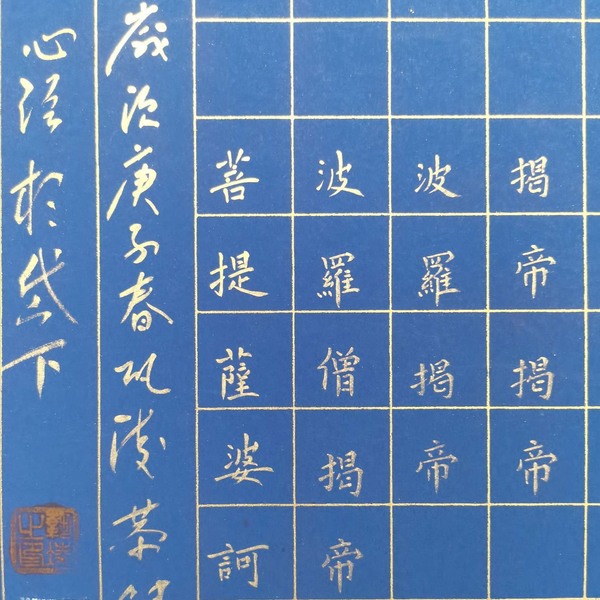 揭帝揭帝
波羅揭帝
波羅僧揭帝
菩提薩婆訶
歲次庚子春巩
心经於岱下